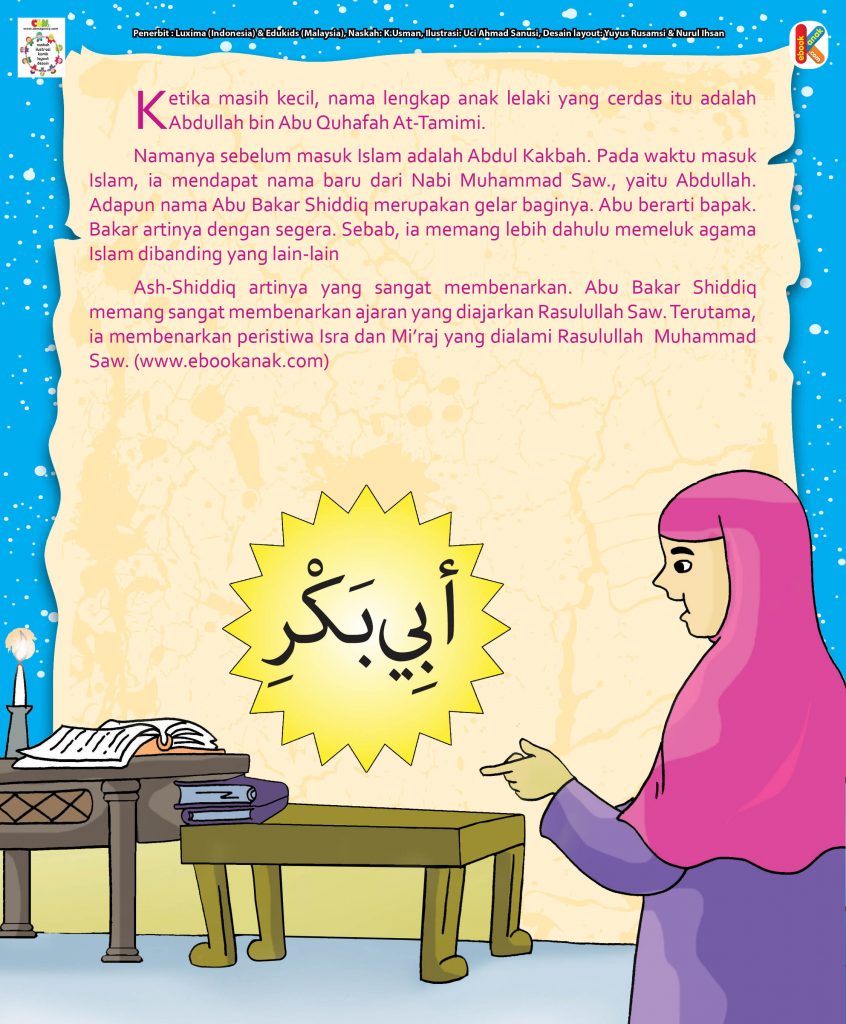 Penerbit : Luxima (Indonesia) & Edukids (Malaysia), Naskah: K.Usman, Ilustrasi: Uci Ahmad Sanusi, Desain layout: Yuyus Rusamsi & Nurul Ihsan
naskah
ilustrasi
komik
layout
desain
ebook
anak
.com
Ketika masih kecil, nama lengkap anak lelaki yang cerdas itu adalah
Abdullah bin Abu Quhafah At-Tamimi.
Namanya sebelum masuk Islam adalah Abdul Kakbah. Pada waktu masuk
Islam, ia mendapat nama baru dari Nabi Muhammad Saw., yaitu Abdullah.
Adapun nama Abu Bakar Shiddiq merupakan gelar baginya. Abu berarti bapak.
Bakar artinya dengan segera. Sebab, ia memang lebih dahulu memeluk agama
Islam dibanding yang lain-lain
Ash-Shiddiq artinya yang sangat membenarkan. Abu Bakar Shiddiq
memang sangat membenarkan ajaran yang diajarkan Rasulullah Saw. Terutama,
ia membenarkan peristiwa Isra dan Mi’raj yang dialami Rasulullah Muhammad
Saw. (www.ebookanak.com)
أبِي بَكْرِ